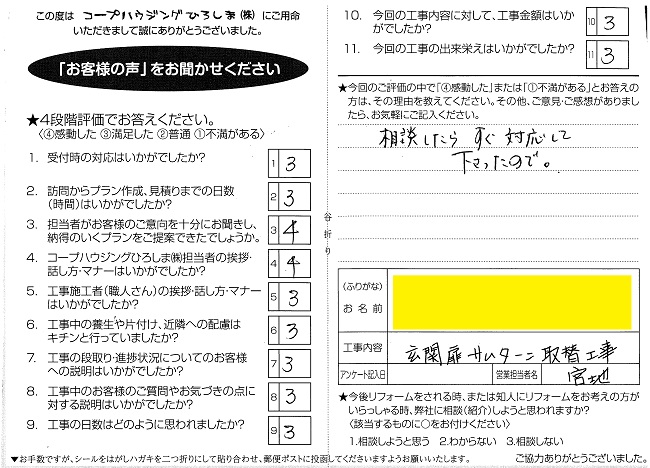 この度は コープハウジングひろしま(株) にご用命
いただきまして誠にありがとうございました。
「お客様の声」をお聞かせください
★4段階評価でお答えください。
〈④感動した ③満足した ②普通 ①不満がある〉
1. 受付時の対応はいかがでしたか? 1 3
2. 訪問からプラン作成、見積りまでの日数
(時間)はいかがでしたか? 2 3
3. 担当者がお客様のご意向を十分にお聞きし、
納得のいくプランをご提案できたでしょうか。 3 4
4. コープハウジングひろしま㈱担当者の挨拶・
話し方・マナーはいかがでしたか? 4 4
5. 工事施工者(職人さん)の挨拶・話し方・マナー
はいかがでしたか? 5 3
6. 工事中の養生や片付け、近隣への配慮は
キチンと行っていましたか? 6 3
7. 工事の段取り・進捗状況についてのお客様
への説明はいかがでしたか? 7 3
8. 工事中のお客様のご質問やお気づきの点に
対する説明はいかがでしたか? 8 3
9. 工事の日数はどのように思われましたか? 9 3
▼お手数ですが、シールをはがしハガキを二つ折りにして貼り合わせ、郵便ポストに投函してくださいますようお願いいたします。
谷折り
10. 今回の工事内容に対して、工事金額はいか
がでしたか? 10 3
11. 今回の工事の出来栄えはいかがでしたか? 11 3
★今回のご評価の中で「④感動した」または「①不満がある」とお答えの
方は、その理由を教えてください。その他、ご意見・ご感想がありまし
たら、お気軽にご記入ください。
相談したら すぐ 対応して
下さったので。
(ふりがな)
お名前
工事内容 玄関扉サムターン取替工事
アンケート記入日 営業担当者名 宮地
★今後リフォームをされる時、または知人にリフォームをお考えの方が
いらっしゃる時、弊社に相談(紹介)しようと思われますか?
〈該当するものに○をお付けください〉
1.相談しようと思う 2.わからない 3.相談しない
ご協力ありがとうございました。